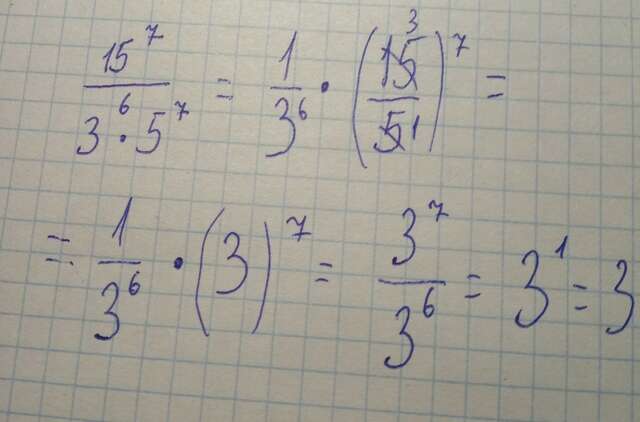 15^7 / (3^6 · 5^7) = 1 / 3^6 · (15 3 / 5 1)^7 =
= 1 / 3^6 · (3)^7 = 3^7 / 3^6 = 3^1 = 3